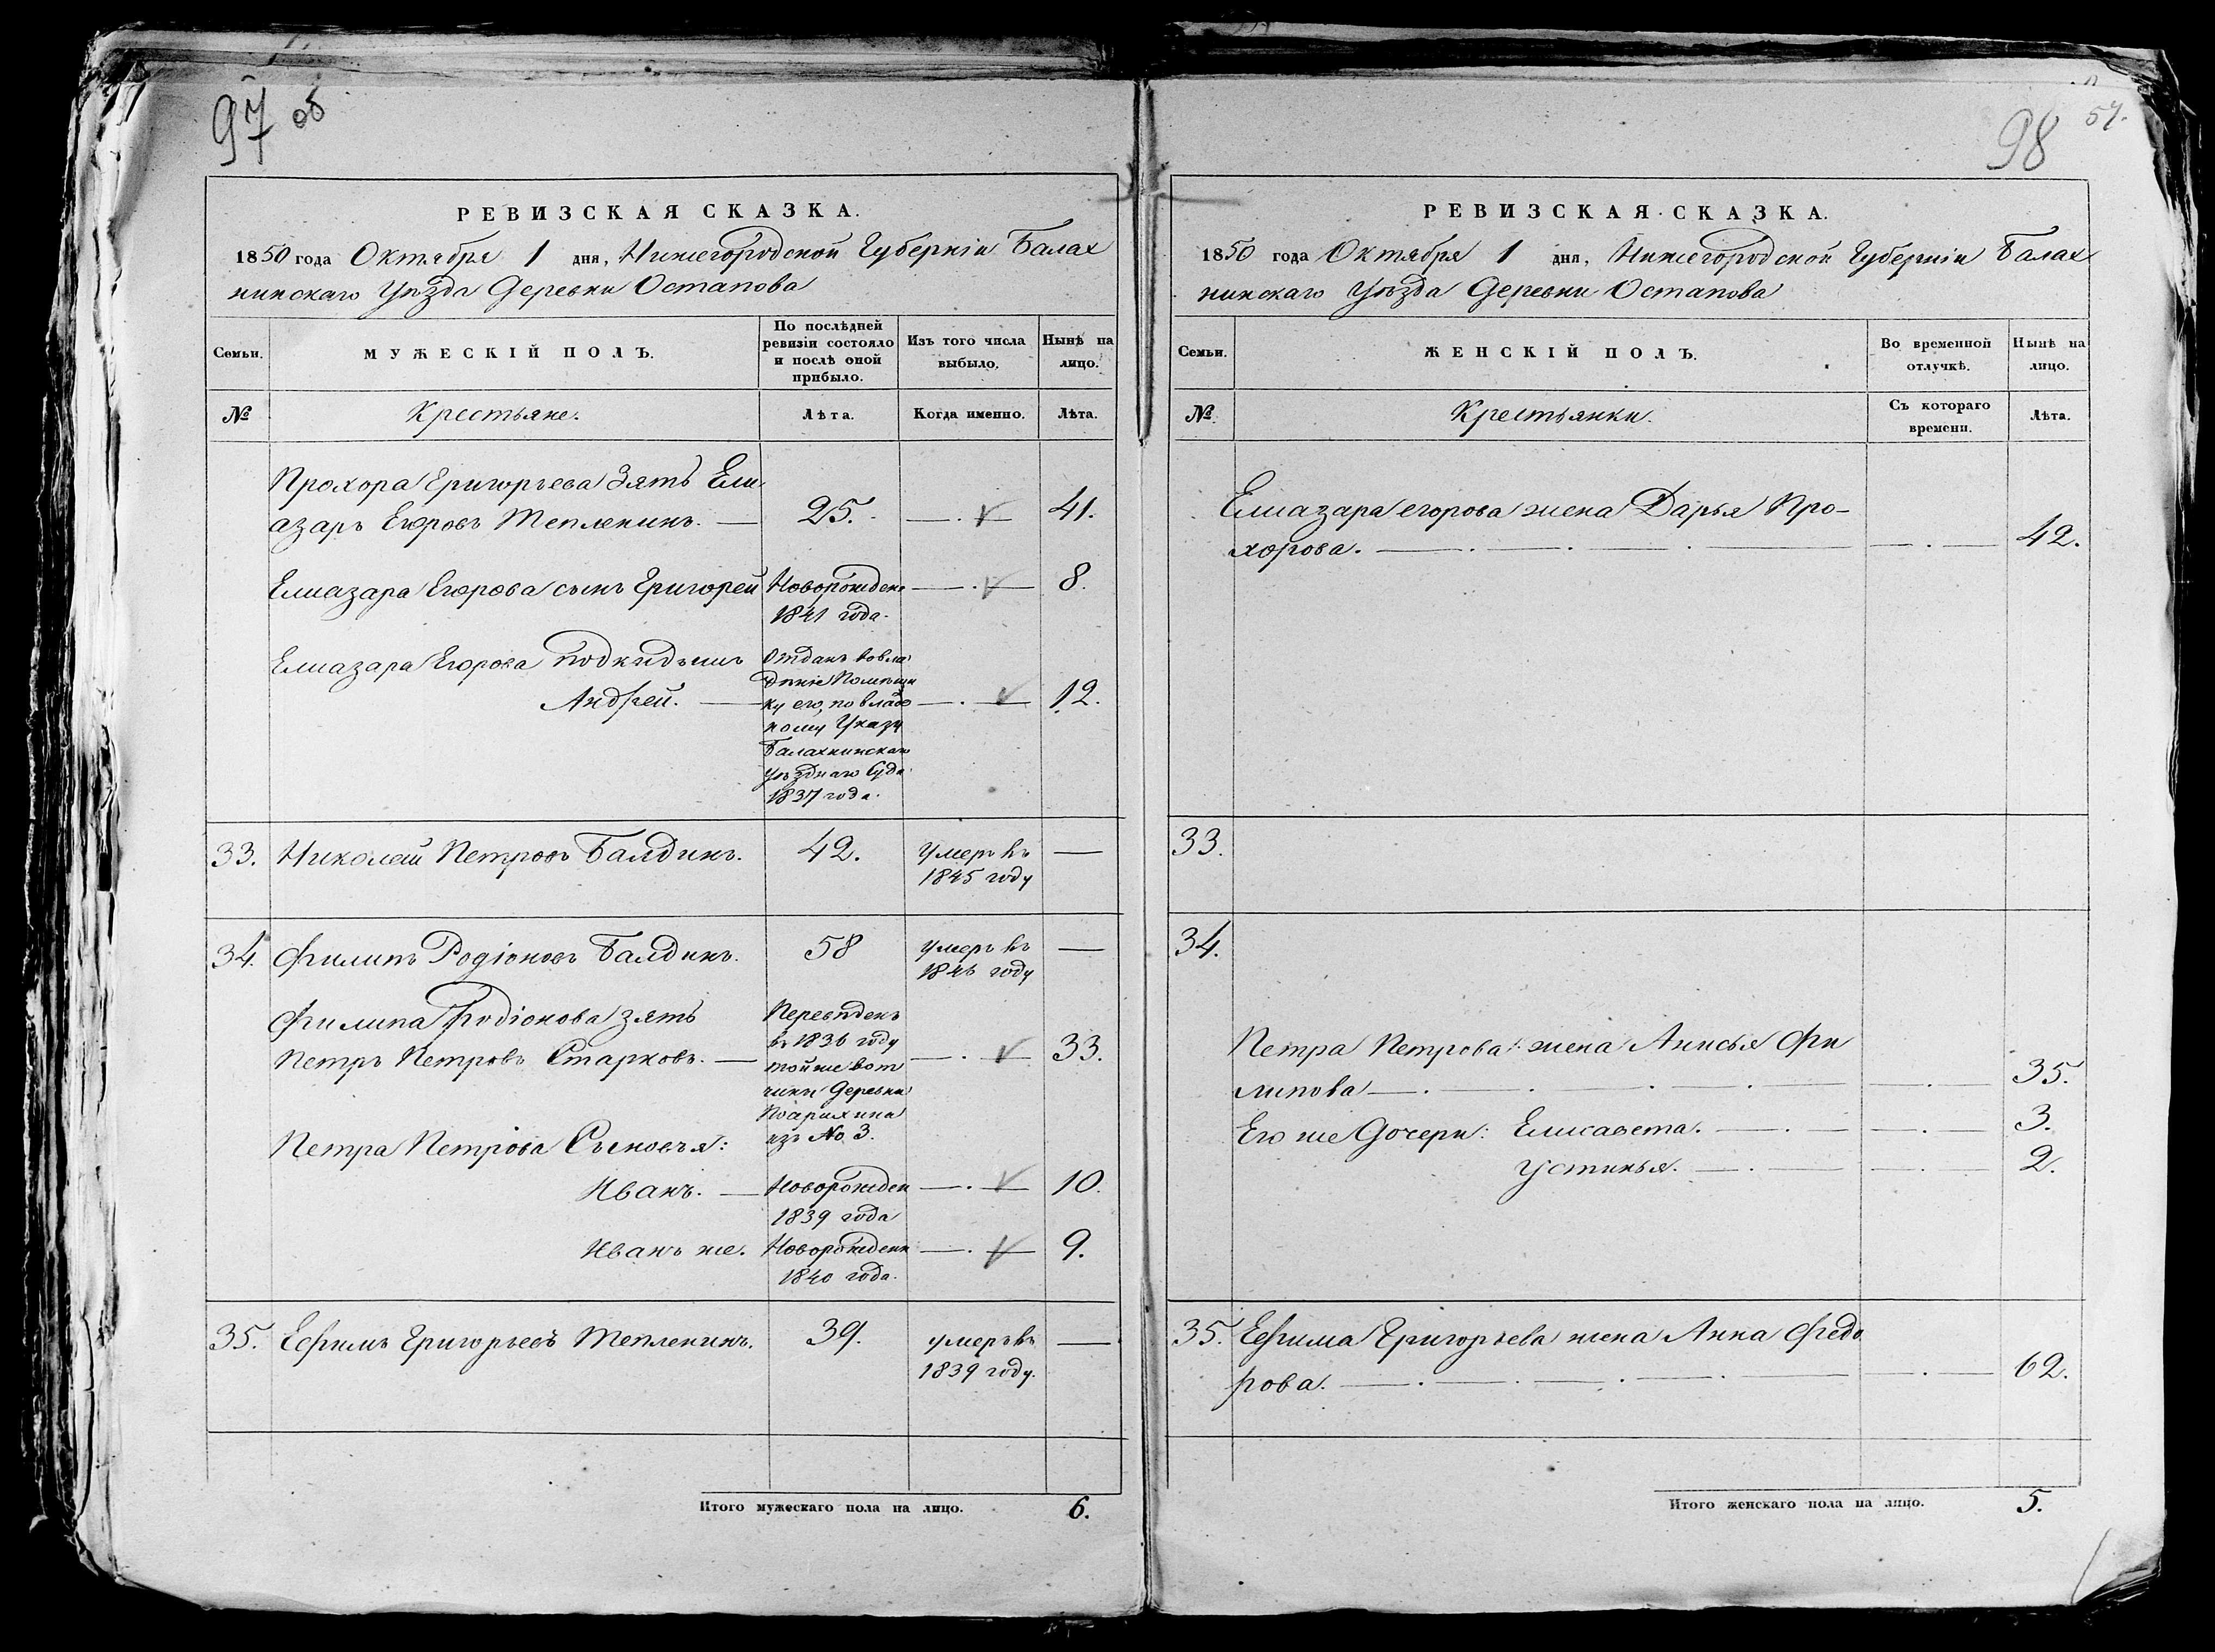 97 об
РЕВИЗСКАЯ СКАЗКА.
1850 года Октября 1 дня, Нижегородской Губерніи Балах
нинскаго Уѣзда Деревни Остапова
Семьи.
МУЖЕСКІЙ ПОЛЪ.
По послѣдней
ревизіи состояло
и послѣ оной
прибыло.
Изъ того числа
выбыло.
Нынѣ на
лицо.
№
Крестьяне.
Лѣта.
Когда именно.
Лѣта.
Прохора Григорьева Зять Ели
азаръ Егоровъ Тепленинъ. 25. 41.
Елиазара Егорова сынъ Григорей Новорожденъ 8.
1841 года.
Елиазара Егорова подкидышъ
Андрей. 12.
Отданъ во вла
дѣніе Помѣщи
ку его, по владѣ
ному Указу
Балахнинскаго
уѣзднаго Суда
1837 года.
33. Николай Петровъ Балдинъ. 42. Умеръ въ —
1845 году
34. Филипъ Родіоновъ Балдинъ. 58 Умеръ въ —
1846 году
Филипа Родіонова зять
Петръ Петровъ Старковъ. 33.
Переведенъ
въ 1836 году
тойже вот
чины Деревни
изъ № 3.
Петра Петрова Сыновья:
Иванъ. Новорожден 10.
1839 года
Иванъ же. Новорожден 9.
1840 года.
35. Ефимъ Григорьевъ Тепленинъ. 39. умеръ въ —
1839 году.
Итого мужескаго пола на лицо. 6.
98 57.
РЕВИЗСКАЯ СКАЗКА.
1850 года Октября 1 дня, Нижегородской Губерніи Балах
нинскаго Уѣзда Деревни Остапова
Семьи.
ЖЕНСКІЙ ПОЛЪ.
Во временной
отлучкѣ.
Нынѣ на
лицо.
№
Крестьянки.
Съ котораго
времени.
Лѣта.
Елиазара егорова жена Дарья Про-
хорова. 42.
33.
34.
Петра Петрова жена Анисья Фи
липова 35.
Его же Дочери: Елисавета. 3.
Устинья. 2.
35. Ефима Григорьева жена Анна Федо
рова. 62.
Итого женскаго пола на лицо. 5.